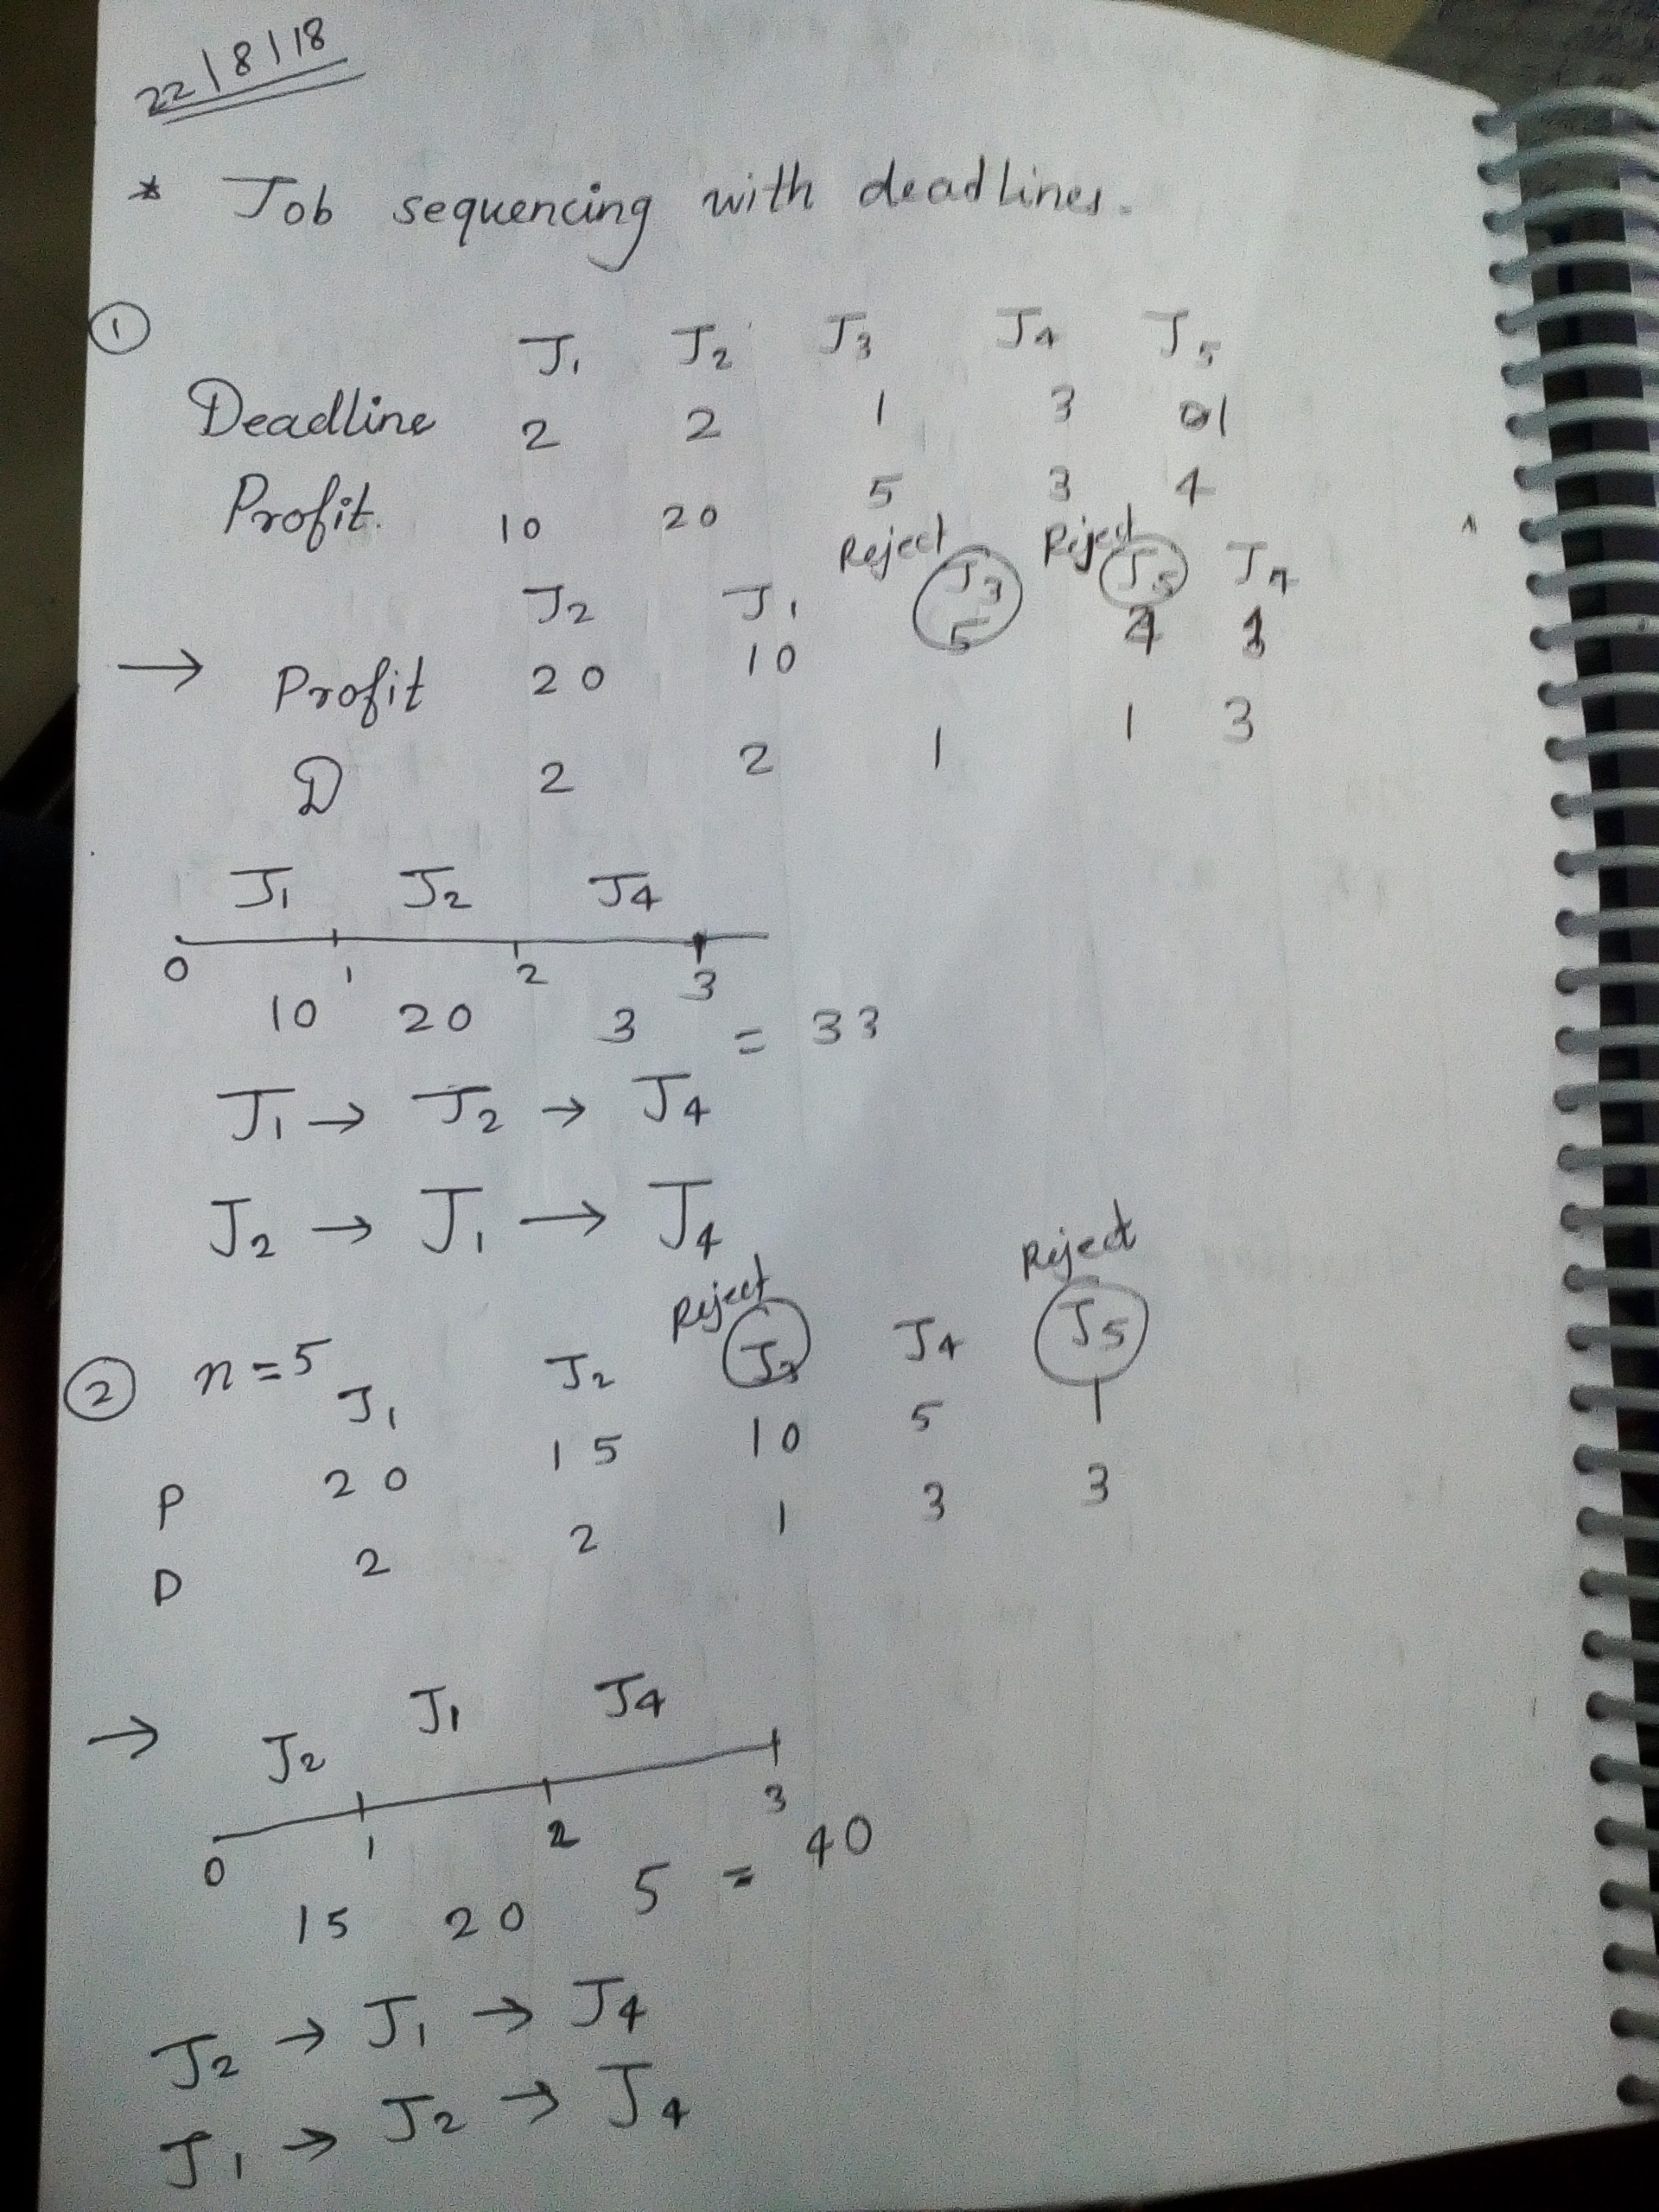 22/8/18
* Job sequencing with deadlines.
① J1 J2 J3 J4 J5
Deadline 2 2 1 3 1
Profit. 10 20 5 3 4
Reject Reject
J2 J1 J3 J5 J4
→ Profit 20 10 5 4 3
D 2 2 1 1 3
J1 J2 J4
0 1 2 3
10 20 3 = 33
J1 → J2 → J4
J2 → J1 → J4
Reject Reject
② n=5 J1 J2 J3 J4 J5
P 20 15 10 5 1
D 2 2 1 3 3
→ J2 J1 J4
0 1 2 3
15 20 5 = 40
J2 → J1 → J4
J1 → J2 → J4